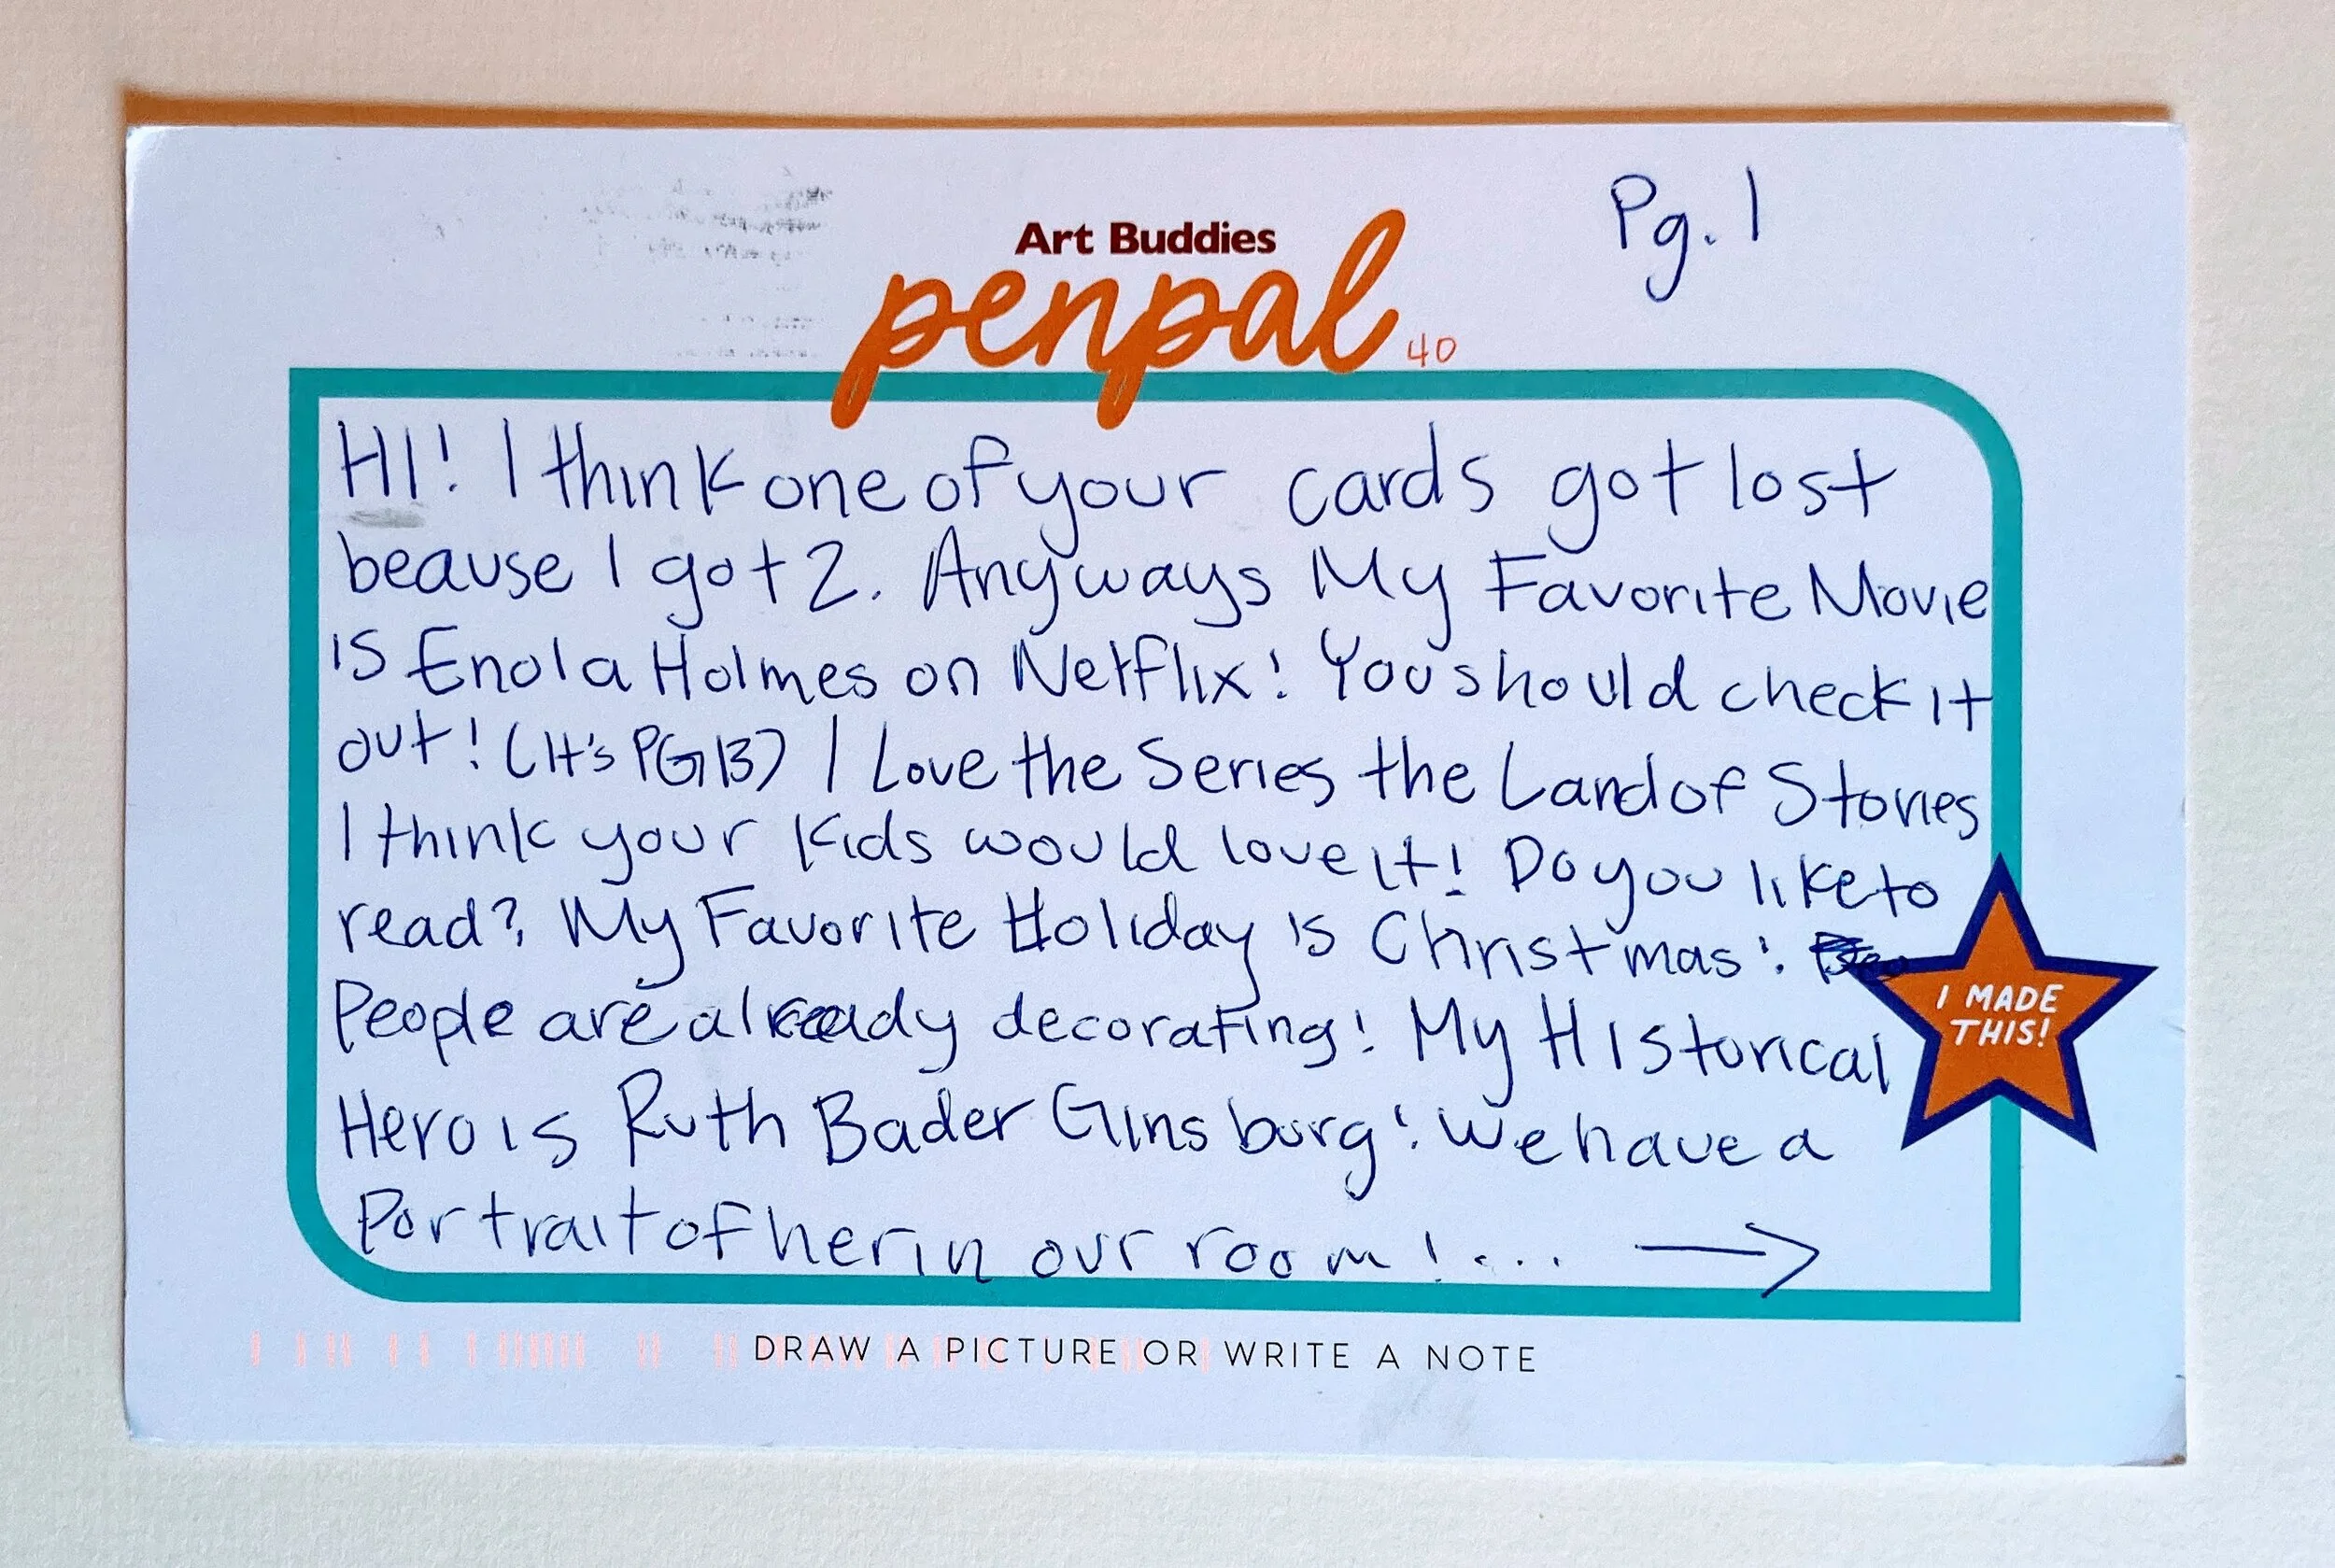 Pg. 1
Art Buddies
penpal 40
HI! I think one of your cards got lost
beause I got 2. Anyways My Favorite Movie
is Enola Holmes on Netflix! You should check it
out! (It's PG13) I Love the Series the Land of Stories
I think your Kids would love it! Do you like to
read? My Favorite Holiday is Christmas!
People are already decorating! My Historical
Hero is Ruth Bader Ginsburg! We have a
Portrait of her in our room!... →
I MADE
THIS!
DRAW A PICTURE OR WRITE A NOTE